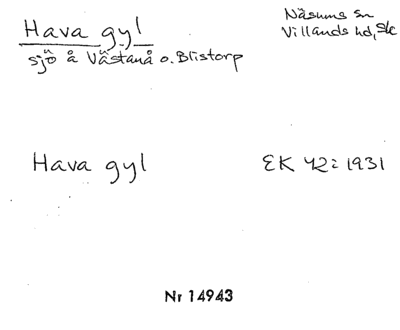 Hava gyl
Näsums sn
Villands hd, Sk
sjö å Västanå o. Blistorp
Hava gyl
EK 42: 1931
Nr 14943